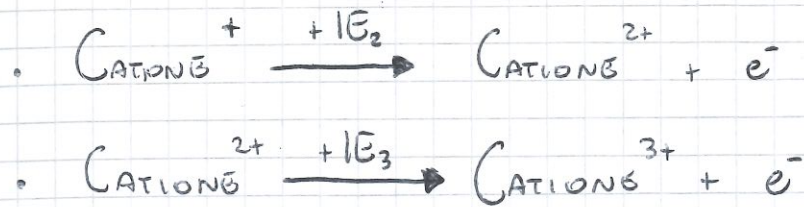 • Catione⁺ + IE₂ → Catione²⁺ + e⁻
• Catione²⁺ + IE₃ → Catione³⁺ + e⁻